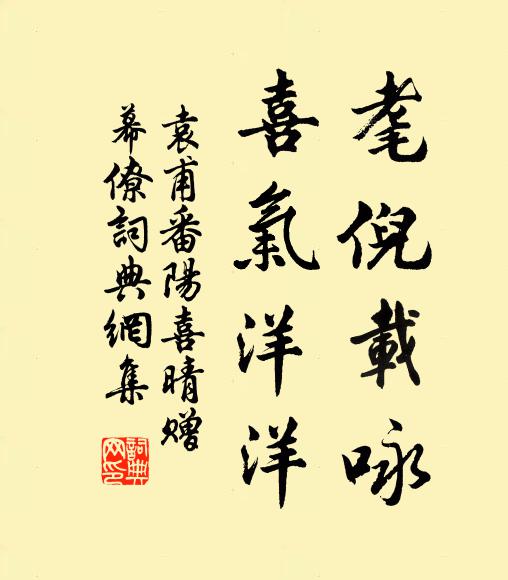 耄倪載咏
喜氣洋洋
袁甫番陽喜晴贈
幕僚詞典網集
詞典网印